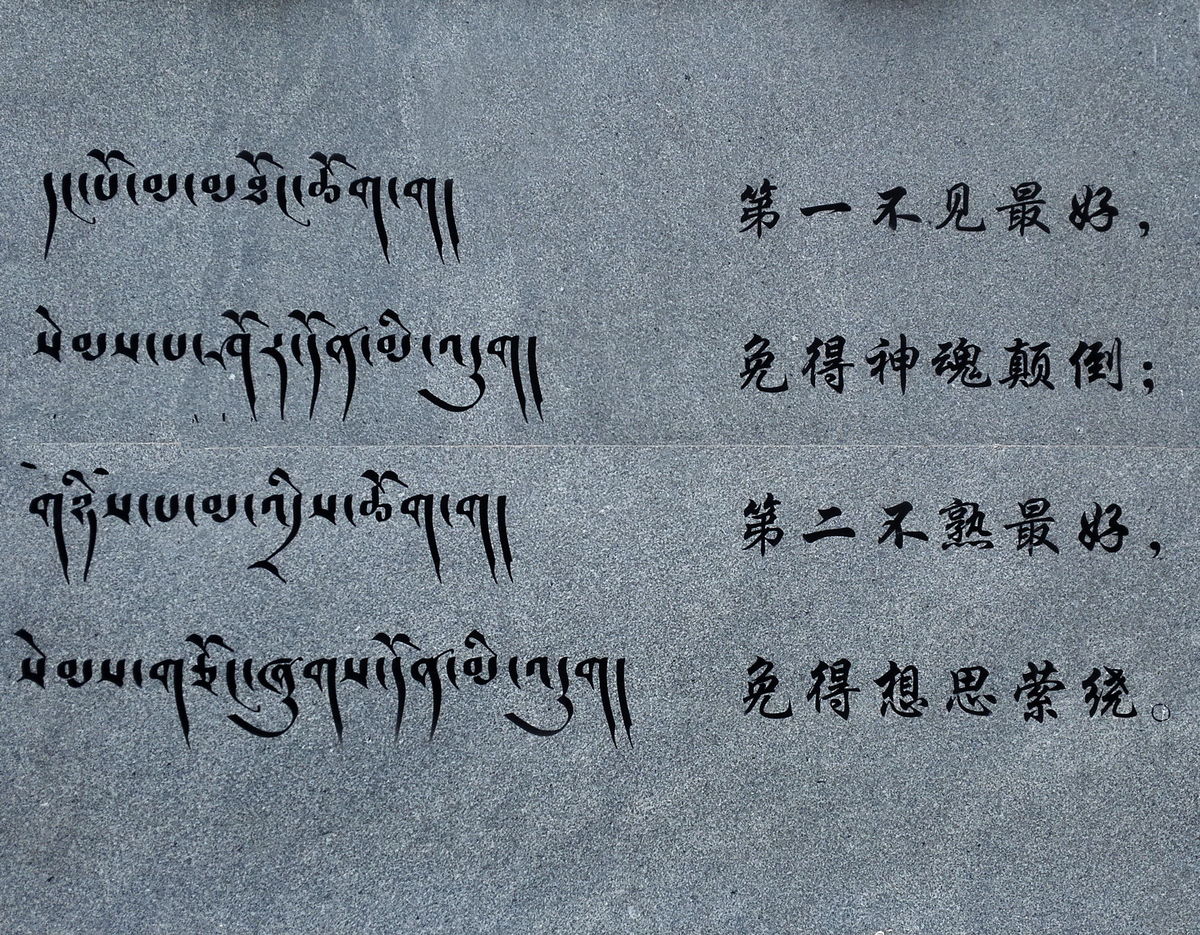 དང་པོ་མ་མཐོང་ཆོག་ག།།
第一不见最好，
སེམས་པ་ཤོར་དོན་མི་འདུག།།
免得神魂颠倒；
གཉིས་པ་མ་འདྲིས་ཆོག་ག།།
第二不熟最好，
སེམས་གཅོང་ཞུགས་དོན་མི་འདུག།།
免得想思萦绕。